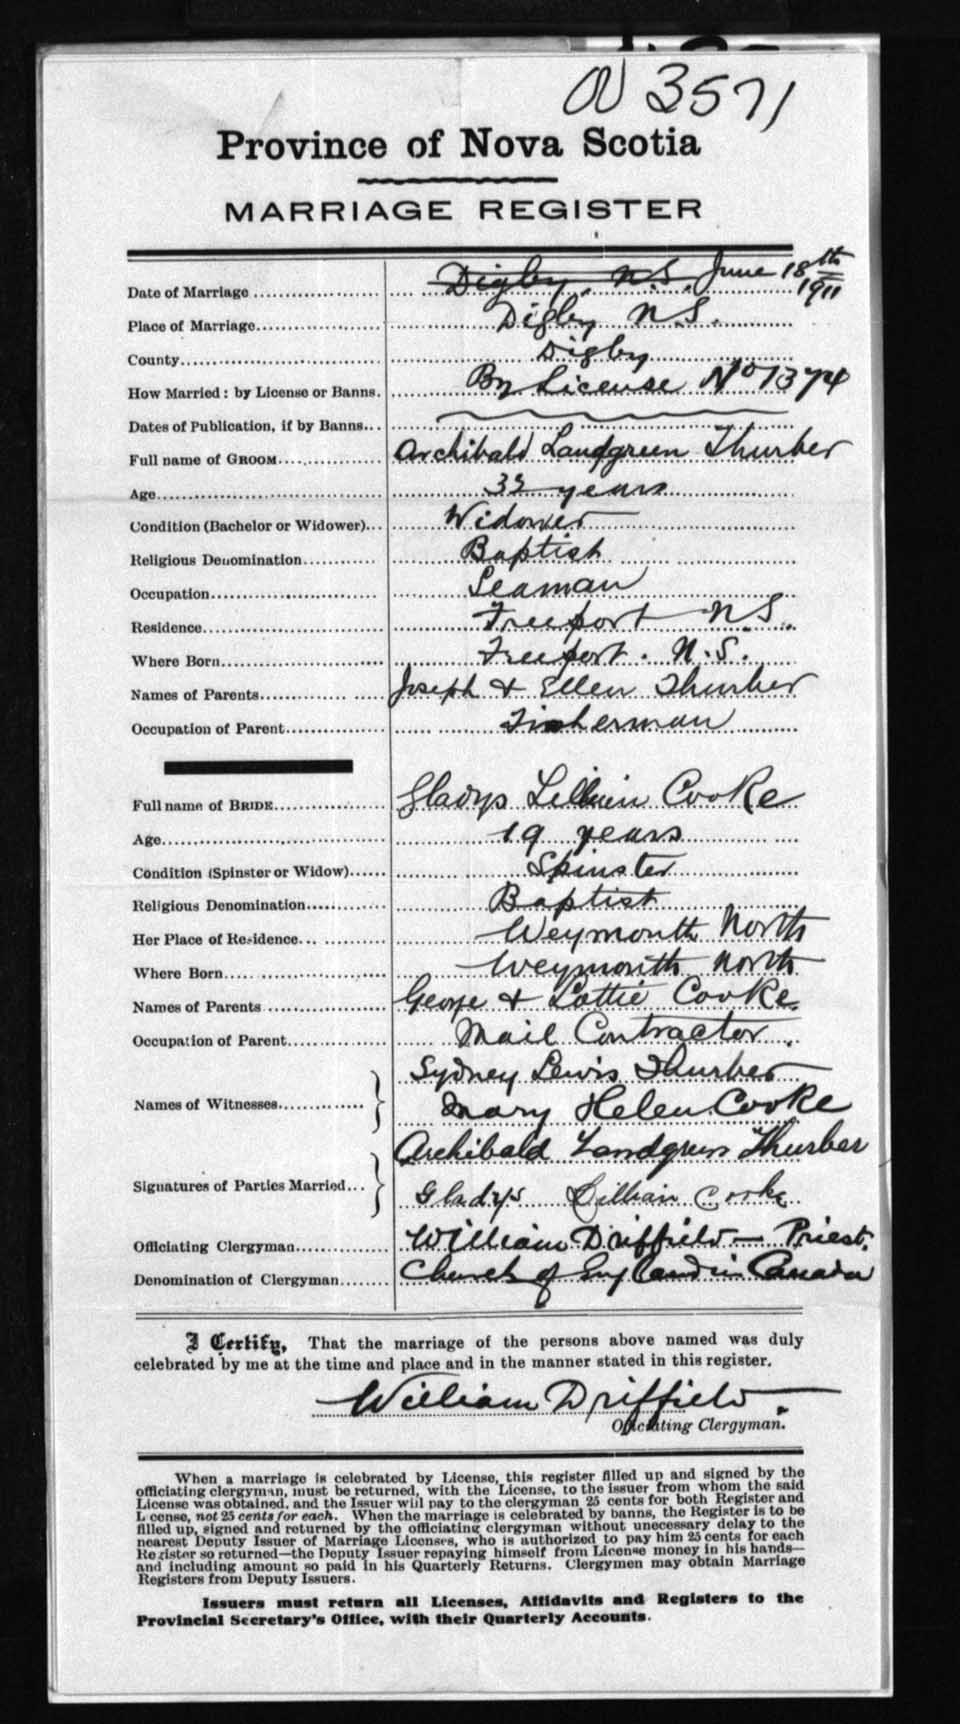 3571
Province of Nova Scotia
MARRIAGE REGISTER
Date of Marriage Digby, N.S. June 18th 1911
Place of Marriage Digby N.S.
County Digby
How Married: by License or Banns. By License No 1374
Dates of Publication, if by Banns
Full name of GROOM Archibald Landgreen Thurber
Age years
Condition (Bachelor or Widower) Widower
Religious Denomination Baptist
Occupation Seaman
Residence Freeport N.S.
Where Born Freeport. N.S.
Names of Parents Joseph & Ellen Thurber
Occupation of Parent Fisherman
Full name of BRIDE Gladys Lillian Cooke
Age 19 years
Condition (Spinster or Widow) Spinster
Religious Denomination Baptist
Her Place of Residence Weymouth North
Where Born Weymouth North
Names of Parents George & Lottie Cooke
Occupation of Parent Mail Contractor
Names of Witnesses Sydney Lewis Thurber
Mary Helen Cooke
Signatures of Parties Married Archibald Landgreen Thurber
Gladys Lillian Cooke
Officiating Clergyman William Driffield — Priest.
Denomination of Clergyman Church of England in Canada
I Certify, That the marriage of the persons above named was duly
celebrated by me at the time and place and in the manner stated in this register.
William Driffield
Officiating Clergyman.
When a marriage is celebrated by License, this register filled up and signed by the
officiating clergyman, must be returned, with the License, to the issuer from whom the said
License was obtained, and the Issuer will pay to the clergyman 25 cents for both Register and
License, not 25 cents for each. When the marriage is celebrated by banns, the Register is to be
filled up, signed and returned by the officiating clergyman without unecessary delay to the
nearest Deputy Issuer of Marriage Licenses, who is authorized to pay him 25 cents for each
Register so returned—the Deputy Issuer repaying himself from License money in his hands—
and including amount so paid in his Quarterly Returns. Clergymen may obtain Marriage
Registers from Deputy Issuers.
Issuers must return all Licenses, Affidavits and Registers to the
Provincial Secretary's Office, with their Quarterly Accounts.